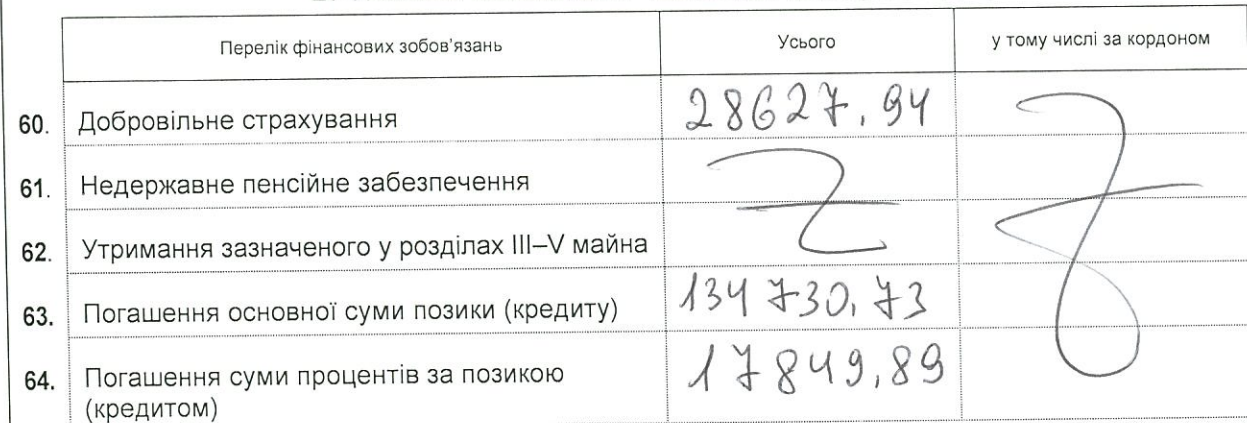 Перелік фінансових зобов'язань Усього у тому числі за кордоном
60. Добровільне страхування 28627,94
61. Недержавне пенсійне забезпечення
62. Утримання зазначеного у розділах III–V майна
63. Погашення основної суми позики (кредиту) 134 730,73
64. Погашення суми процентів за позикою 17849,89
(кредитом)